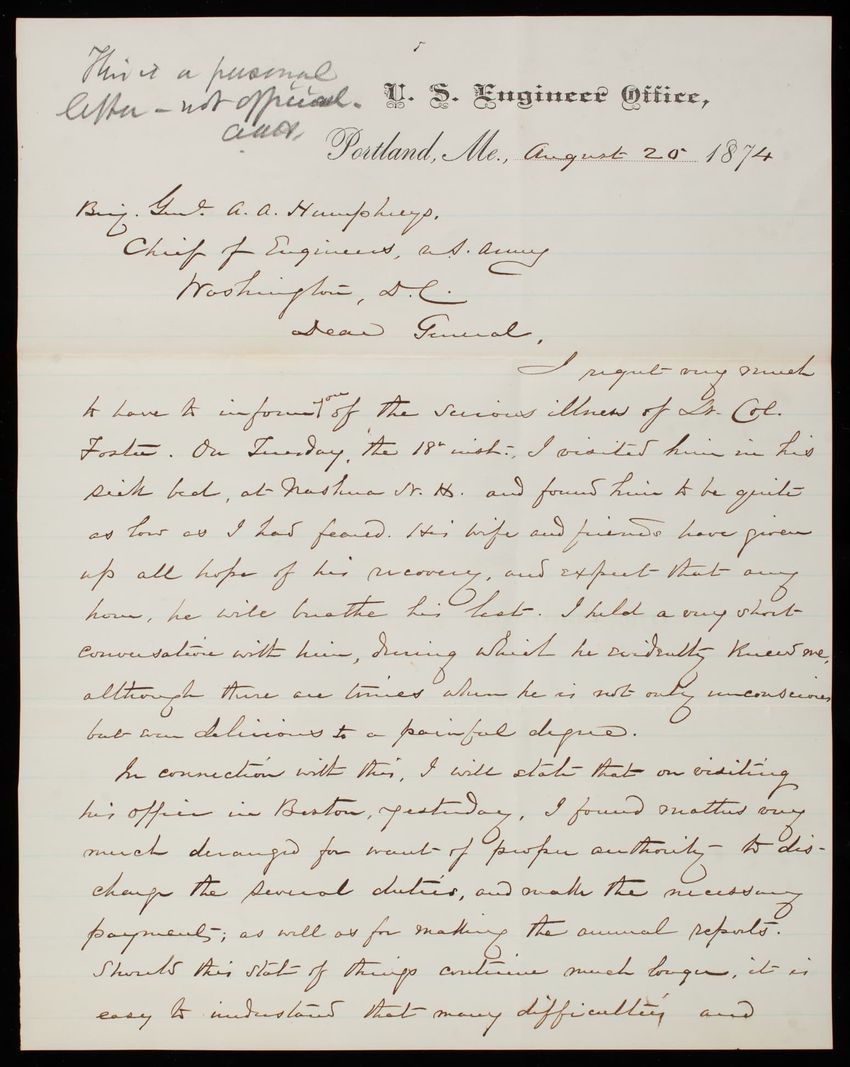 This is a personal
letter - not official.
U. S. Engineer Office,
Portland, Me., August 20 1874
Brig. Genl. A. A. Humphreys,
Chief of Engineers, U.S. Army
Washington, D.C.
Dear General,
I regret very much
to have to inform you of the serious illness of Lt. Col.
Foster. On Tuesday, the 18th inst., I visited him in his
sick bed, at Nashua N. H. and found him to be quite
as low as I had feared. His wife and friends have given
up all hope of his recovery, and expect that any
hour, he will breathe his last. I held a very short
conversation with him, during which he evidently knew me,
although there are times when he is not only unconscious
but even delirious to a painful degree.
In connection with this, I will state that on visiting
his office in Boston, yesterday, I found matters very
much deranged for want of proper authority to dis-
charge the several duties, and make the necessary
payments; as well as for making the annual reports.
Should this state of things continue much longer, it is
easy to understand that many difficulties and